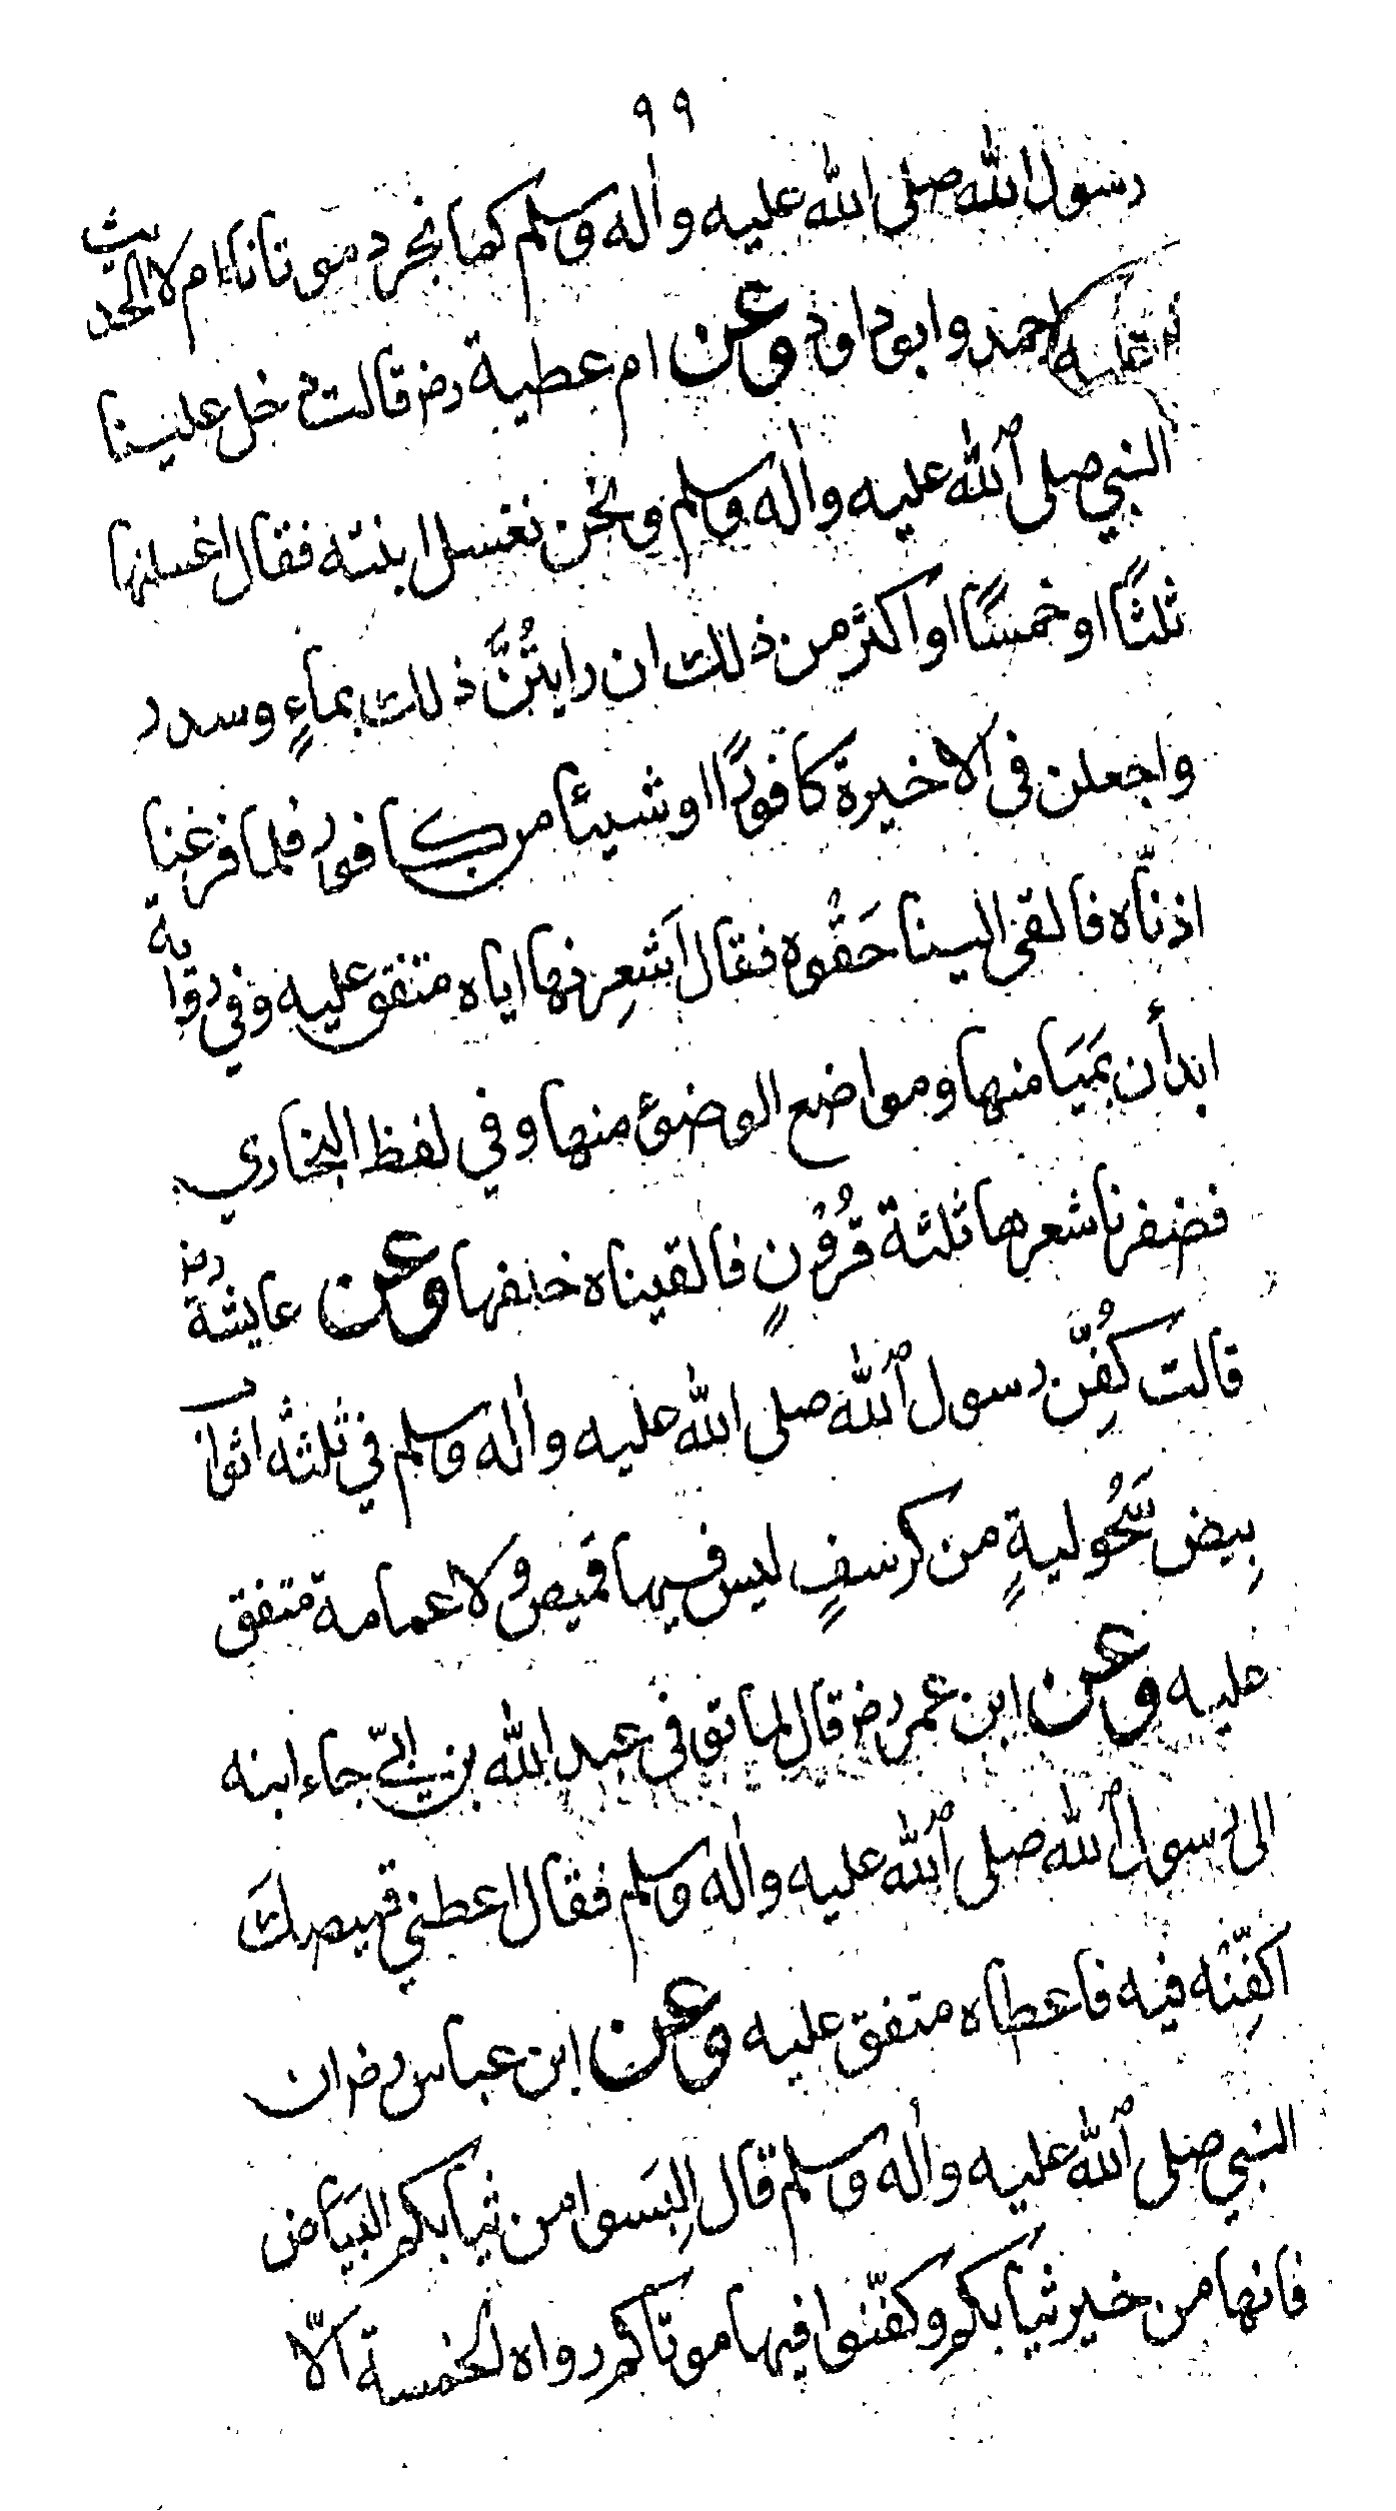 ٩٩
رسول الله صلى الله عليه واٰله وسلم كما نجرد موتانا ام لا الحديث
احمد وابوداود وعن ام عطية رضـ قالت دخل علينا
النبي صلى الله عليه واٰله وسلم ونحن نغسل ابنته فقال اغسلنها
ثلثًا او خمسًا او اكثر من ذلك ان رايتُنَّ ذلك بماءٍ وسدر
واجعلن فى الاخيرة كافورًا او شيئًا من كافور فلما فرغنا
اذنّاه فالقى الينا حَقْوه فقال اَشعِرنها اياه متفق عليه وفي رواية
ابدأن بمَيَامنها ومواضع الوضوء منها وفي لفظ البخاري
فضفرنا شعرها ثلثة قُرُوْنٍ فالقيناه خلفها وعن عايشة رضـ
قالت كُفِّن رسول الله صلى الله عليه واٰله وسلم في ثلثة اثواب
بِيض سَُحُوليةٍ من كرسفٍ ليس فيها قميص ولا عمامة متفق
عليه وعن ابن عمر رضـ قال لما توفى عبد الله بن ابيّ جاء ابنه
الى رسول الله صلى الله عليه واٰله وسلم فقال اعطني قميصكَ
اكفِّنْه فيه فاعطاه متفق عليه وعن ابن عباس رضـ ان
النبي صلى الله عليه واٰله وسلم قال اِلبَسوا من ثيابكم البَيَاض
فانها من خير ثيابكم وكفّنوا فيها موتاكم رواه لخمسة الّا